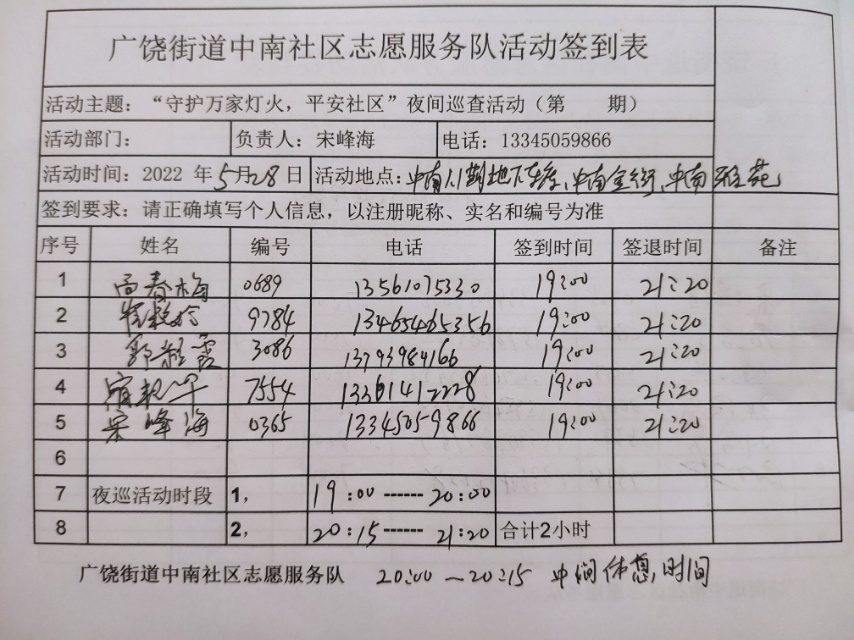 广饶街道中南社区志愿服务队活动签到表
活动主题：“守护万家灯火，平安社区”夜间巡查活动（第　　期）
活动部门： 负责人：宋峰海 电话：13345059866
活动时间：2022 年5月28日 活动地点：中南1.1期地下车库、中南金街、中南雅苑
签到要求：请正确填写个人信息，以注册昵称、实名和编号为准
序号 姓名 编号 电话 签到时间 签退时间 备注
1 高春梅 0689 13561075330 19:00 21:20
2 9784 13465465356 19:00 21:20
3 郭 霞 3086 13793984166 19:00 21:20
4 7554 13361412228 19:00 21:20
5 宋峰海 0365 13345059866 19:00 21:20
6
7 夜巡活动时段 1， 19:00 ------ 20:00
8 2， 20:15 ------ 21:20 合计2小时
广饶街道中南社区志愿服务队 20:00—20:15 中间休息时间